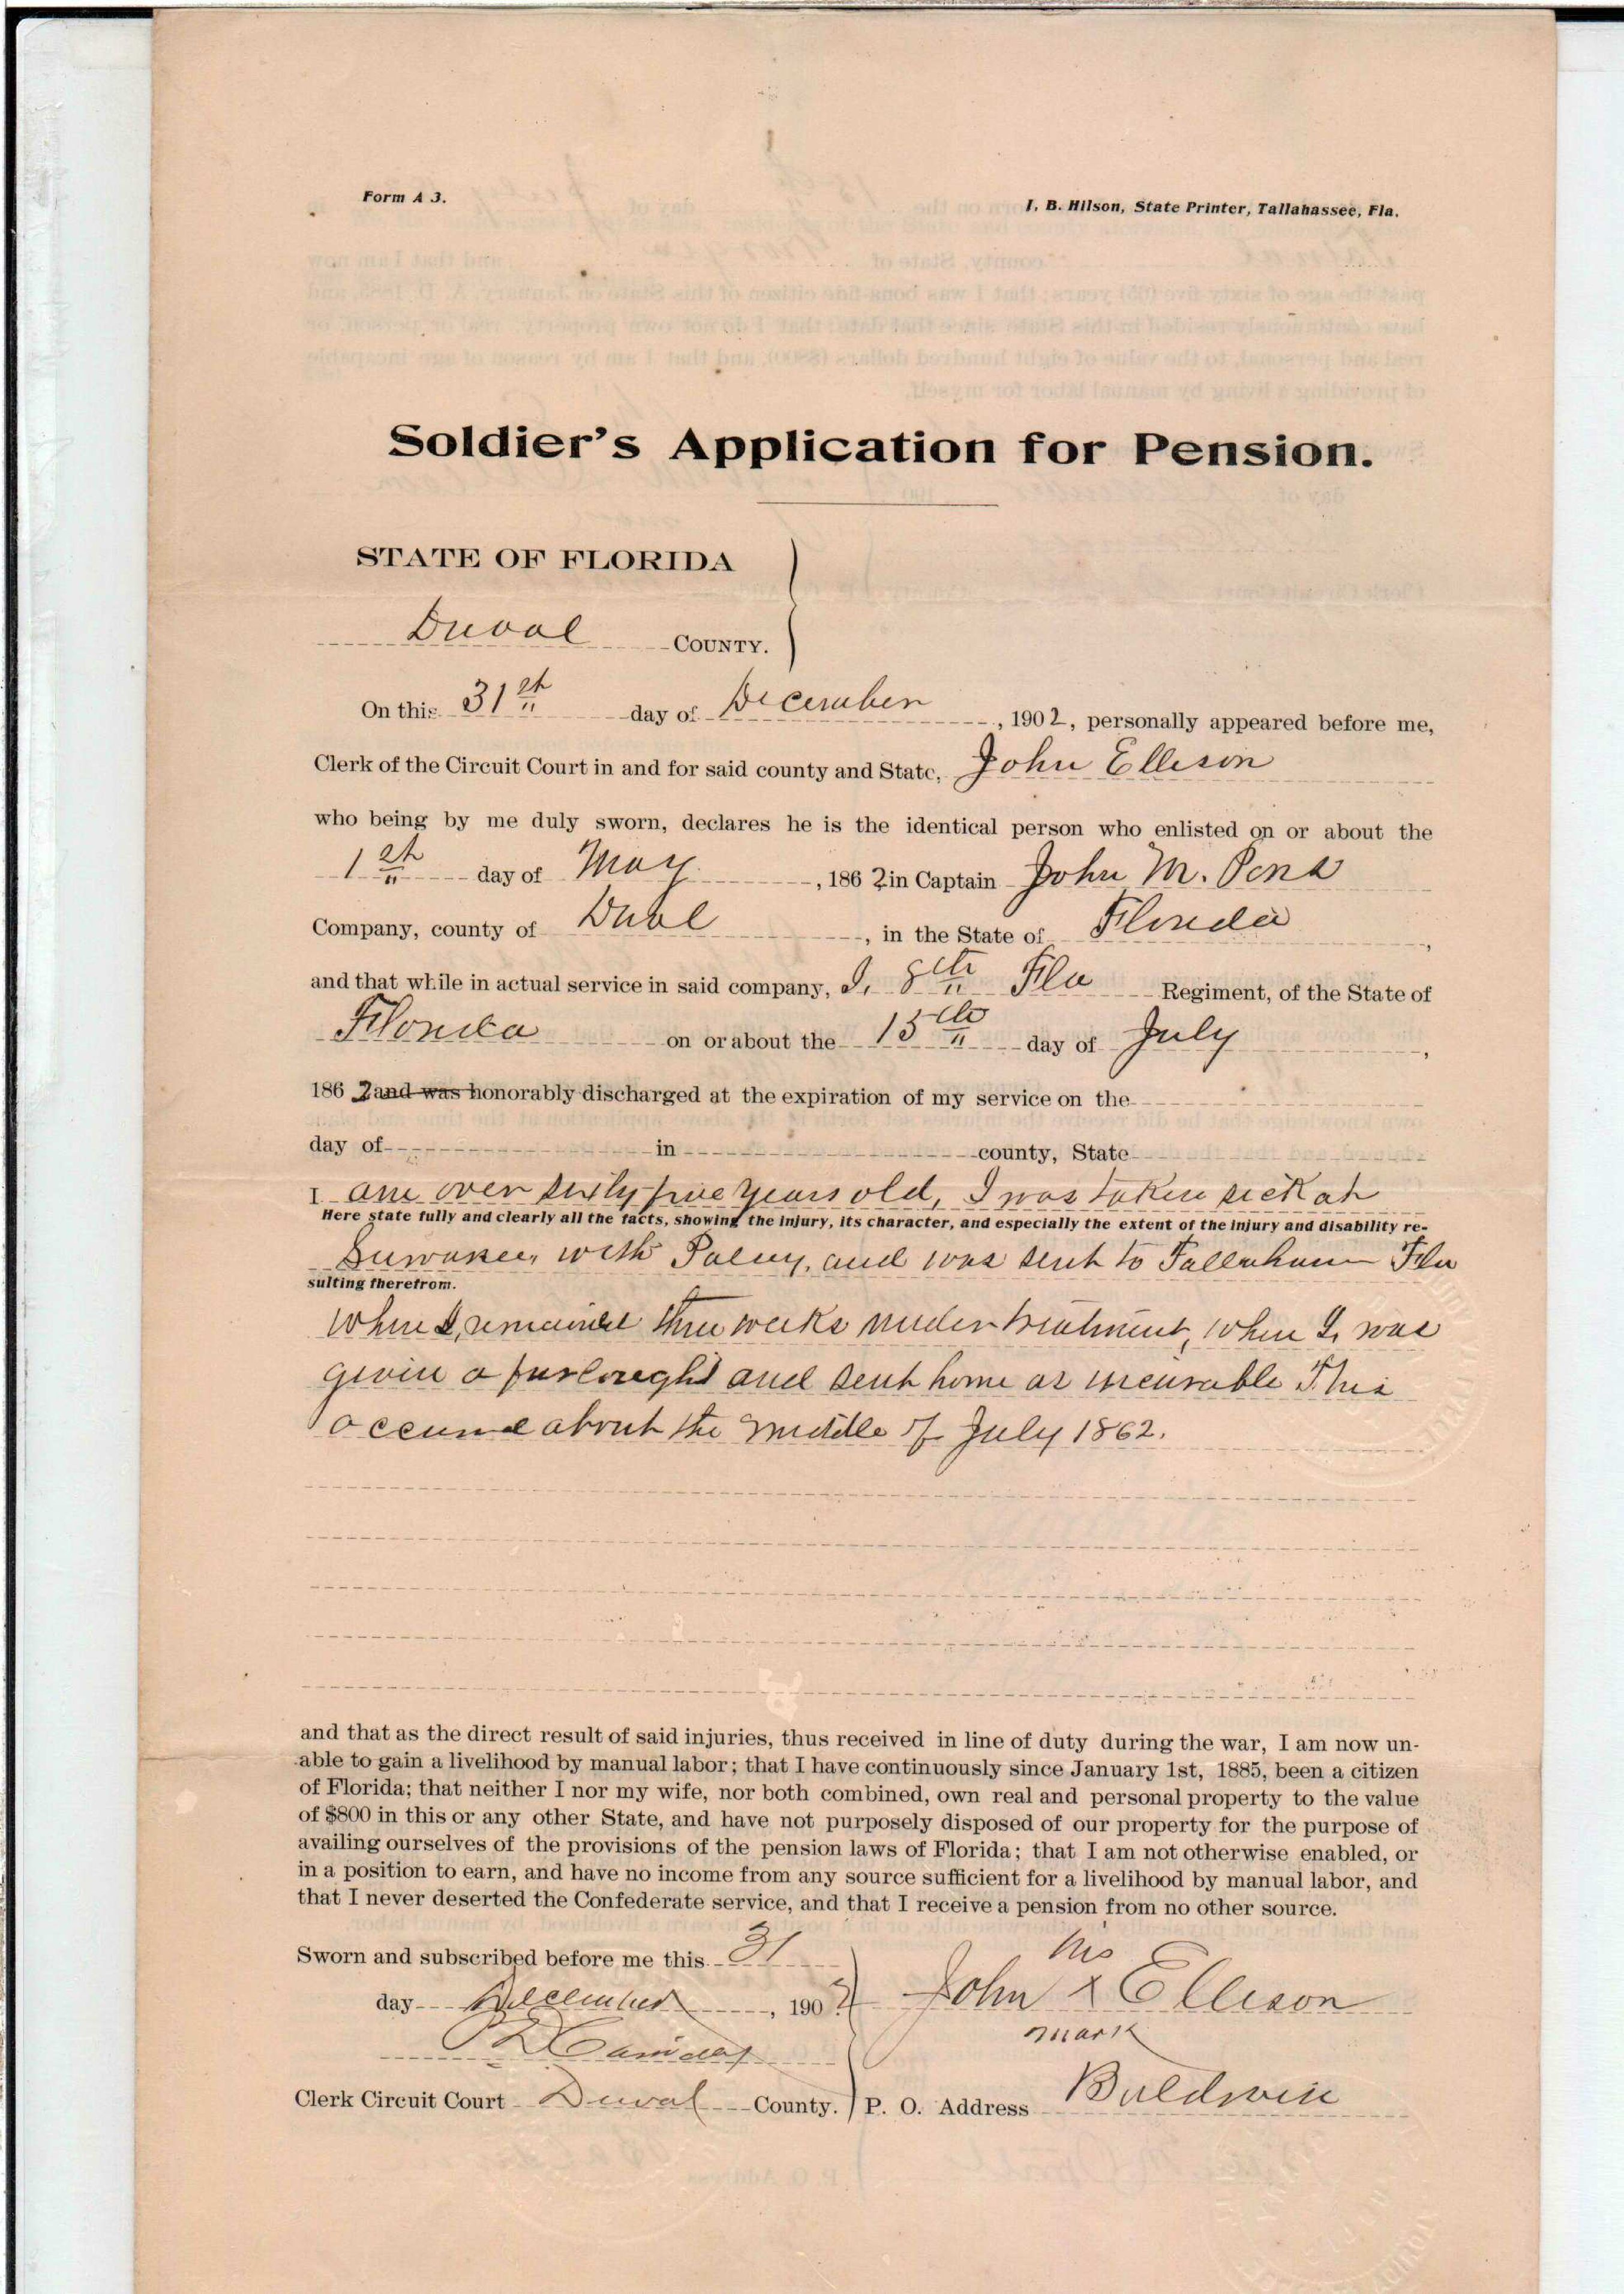 Form A 3.
I. B. Hilson, State Printer, Tallahassee, Fla.
Soldier's Application for Pension.
STATE OF FLORIDA
Duval COUNTY.
On this 31st day of December, 1902, personally appeared before me,
Clerk of the Circuit Court in and for said county and State, John Ellison
who being by me duly sworn, declares he is the identical person who enlisted on or about the
1st day of May, 1862 in Captain John M. Pons
Company, county of Duval, in the State of Florida,
and that while in actual service in said company, I. 8th Fla Regiment, of the State of
Florida on or about the 15th day of July,
1862 and was honorably discharged at the expiration of my service on the
day of in county, State
I am over sixty five years old, I was taken sick at
Here state fully and clearly all the facts, showing the injury, its character, and especially the extent of the injury and disability re-
Suwanee, with Palsy, and was sent to Fla
sulting therefrom.
where I, remained three weeks under treatment, when I, was
given a and sent home as incurable This
about the middle of July 1862.
and that as the direct result of said injuries, thus received in line of duty during the war, I am now un-
able to gain a livelihood by manual labor; that I have continuously since January 1st, 1885, been a citizen
of Florida; that neither I nor my wife, nor both combined, own real and personal property to the value
of $800 in this or any other State, and have not purposely disposed of our property for the purpose of
availing ourselves of the provisions of the pension laws of Florida; that I am not otherwise enabled, or
in a position to earn, and have no income from any source sufficient for a livelihood by manual labor, and
that I never deserted the Confederate service, and that I receive a pension from no other source.
Sworn and subscribed before me this 31
his
day December, 1902 John X Ellison
mark
Clerk Circuit Court Duval County. P. O. Address Baldwin